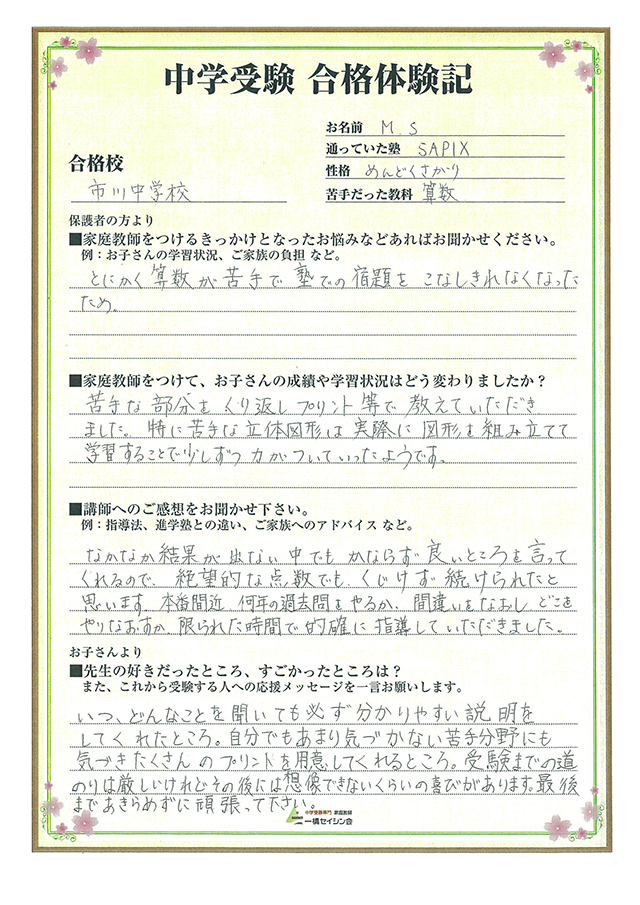 中学受験 合格体験記
お名前 M.S
通っていた塾 SAPIX
合格校
性格 めんどくさがり
市川中学校
苦手だった教科 算数
保護者の方より
■家庭教師をつけるきっかけとなったお悩みなどあればお聞かせください。
例：お子さんの学習状況、ご家族の負担 など。
とにかく算数が苦手で塾での宿題をこなしきれなくなった
ため。
■家庭教師をつけて、お子さんの成績や学習状況はどう変わりましたか？
苦手な部分をくり返しプリント等で教えていただき
ました。特に苦手な立体図形は実際に図形を組み立てて
学習することで少しずつ力がついていったようです。
■講師へのご感想をお聞かせ下さい。
例：指導法、進学塾との違い、ご家族へのアドバイス など。
なかなか結果が出ない中でもかならず良いところを言って
くれるので、絶望的な点数でも、くじけず続けられたと
思います。本番間近、何年の過去問をやるか、間違いをなおし どこを
やりなおすか、限られた時間で的確に指導していただきました。
お子さんより
■先生の好きだったところ、すごかったところは？
また、これから受験する人への応援メッセージを一言お願いします。
いつ、どんなことを聞いても必ず分かりやすい説明を
してくれたところ。自分でもあまり気づかない苦手分野にも
気づきたくさんのプリントを用意してくれるところ。受験までの道
のりは厳しいけれどその後には想像できないくらいの喜びがあります。最後
まであきらめずに頑張って下さい。
中学受験専門 家庭教師
一橋セイシン会